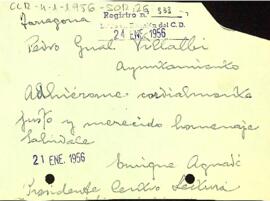 CLR-4-1-1956-
Tarragona
Registro n.º 888
24 ENE. 1956
Pedro Gual Villalbi
Ayuntamiento
Adhiérome cordialmente
justo y merecido homenaje
Salúdale
21 ENE. 1956
Enrique Aguadé
Presidente Centro Lectura